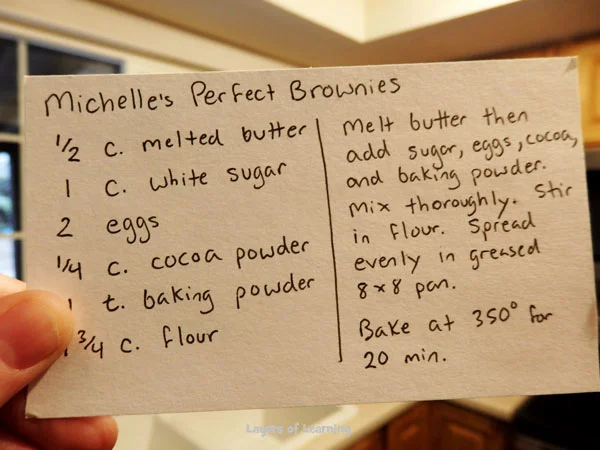 Michelle's Perfect Brownies
1/2 c. melted butter
1 c. white sugar
2 eggs
1/4 c. cocoa powder
1 t. baking powder
3/4 c. flour
Melt butter then
add sugar, eggs, cocoa,
and baking powder.
Mix thoroughly. Stir
in flour. Spread
evenly in greased
8x8 pan.
Bake at 350° for
20 min.
Layers of Learning